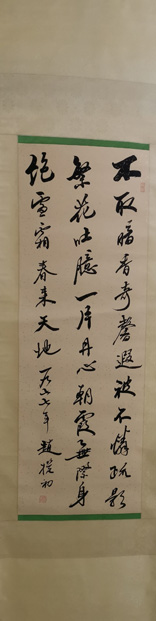 不取暗香奇馨遐被不憐疏影
繁花吐臆一片丹心朝霞無際身
飽雪霜春来天地 一九七七年 趙樸初